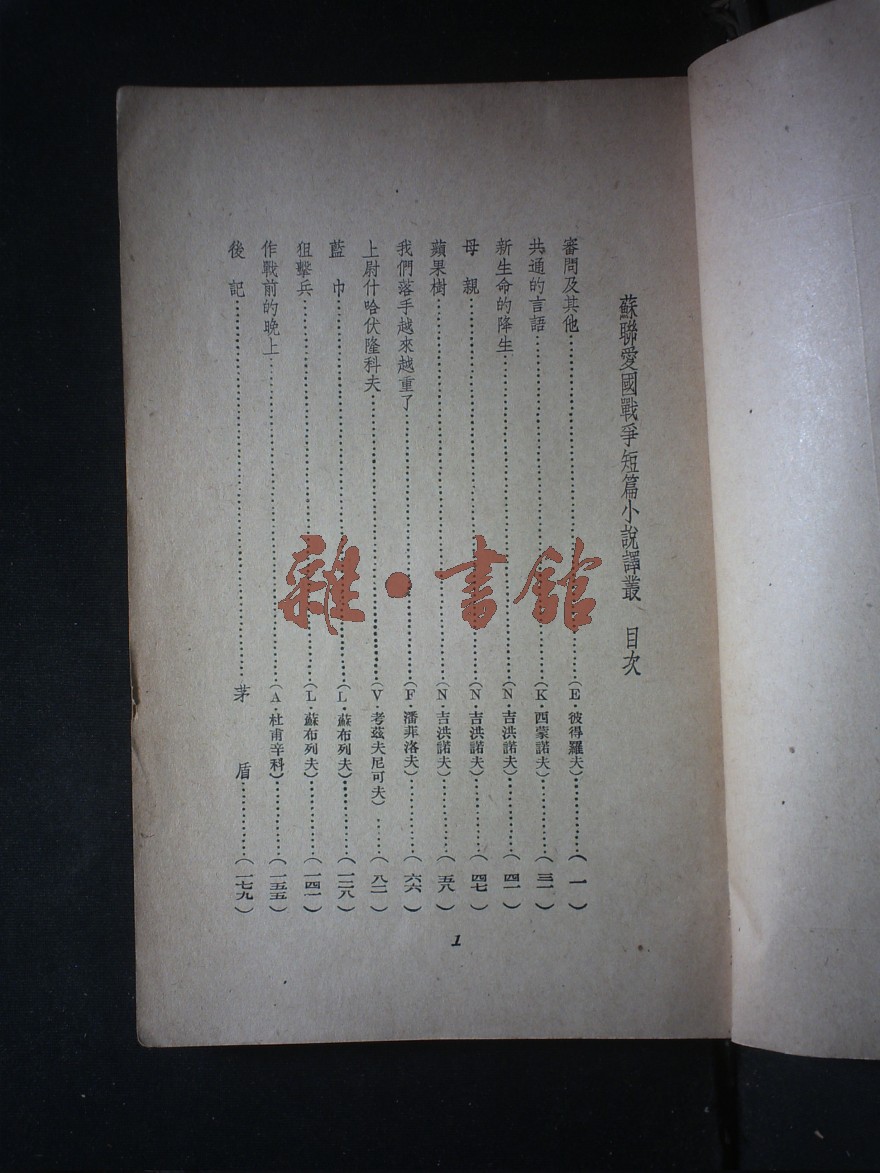 蘇聯愛國戰爭短篇小說譯叢、目次
審問及其他…………(E·彼得羅夫)…………(一)
共通的言語…………(K·西蒙諾夫)…………(三一)
新生命的降生…………(N·吉洪諾夫)…………(四一)
母親…………(N·吉洪諾夫)…………(四七)
蘋果樹…………(N·吉洪諾夫)…………(五八)
我們落手越來越重了…………(F·潘菲洛夫)…………(六六)
上尉什哈伏隆科夫…………(V·考茲夫尼可夫)……(八二)
藍巾…………(L·蘇布列夫)…………(一二八)
狙擊兵…………(L·蘇布列夫)…………(一四一)
作戰前的晚上…………(A·杜甫辛科)…………(一五五)
後記…………茅盾…………(一七九)
1
雜·書館